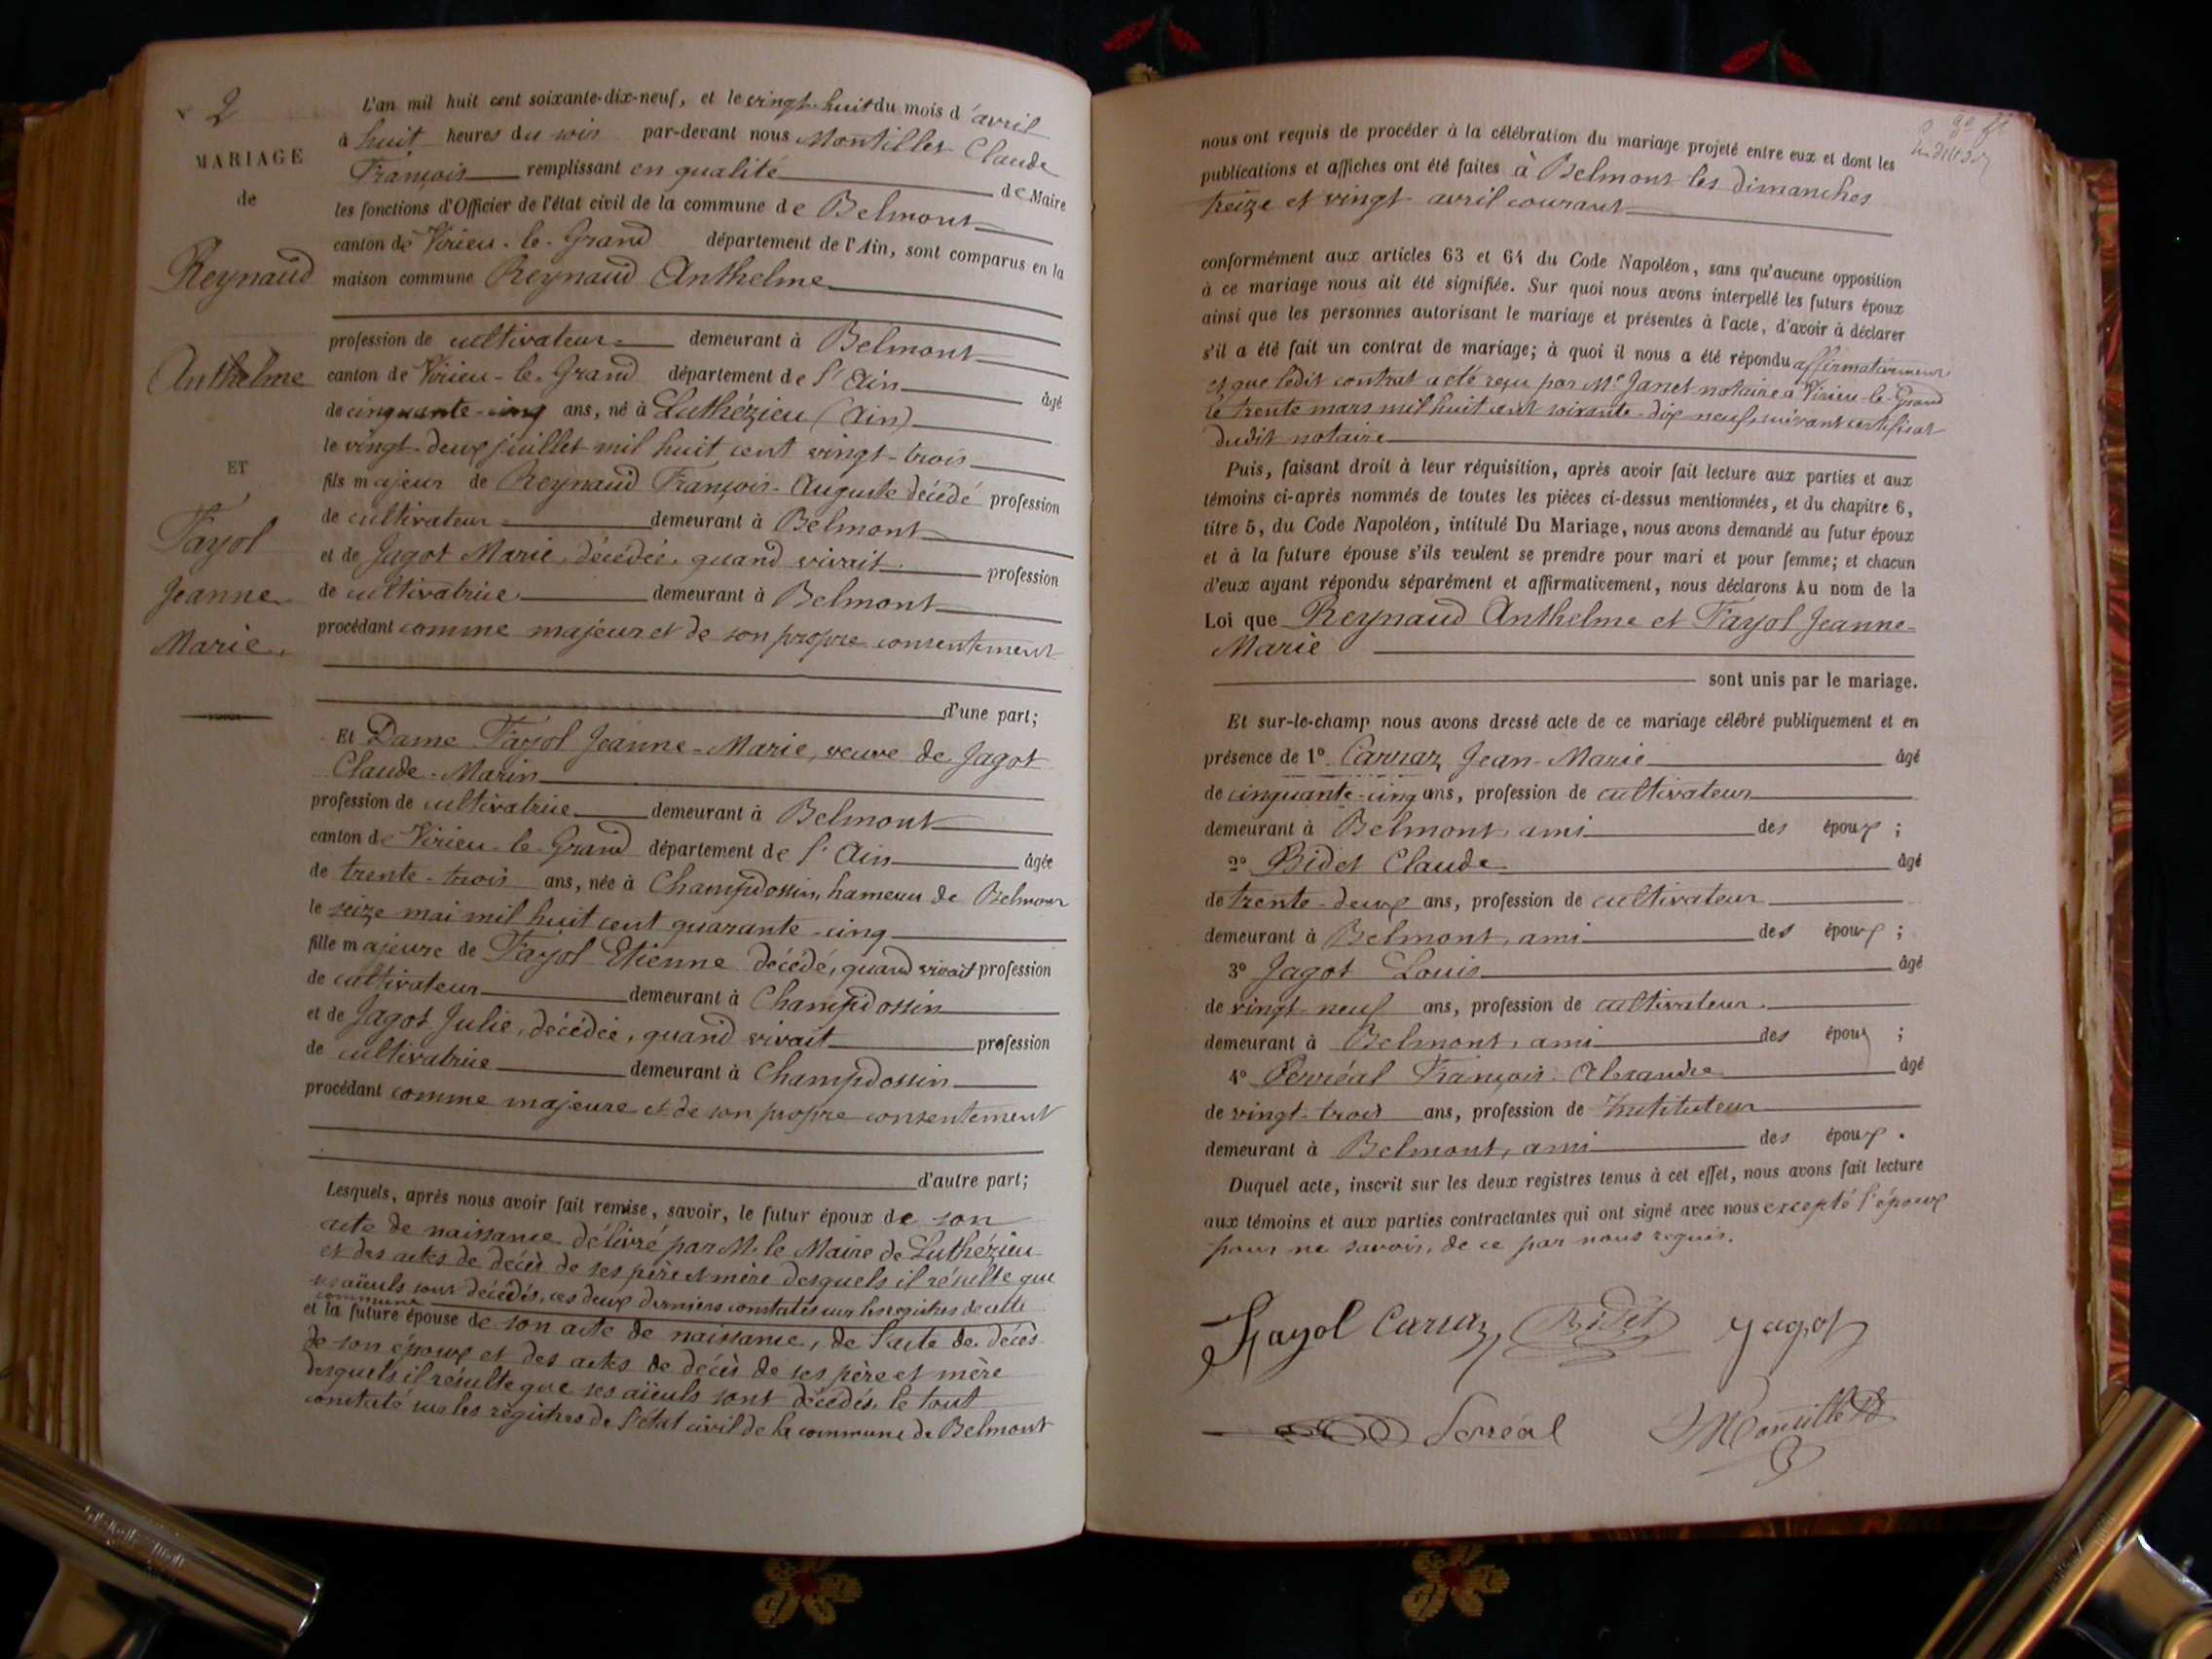 2
MARIAGE
de
Reynaud
Anthelme
ET
Fayol
Jeanne
Marie.
L'an mil huit cent soixante-dix-neuf, et le vingt-huit du mois d'avril
à huit heures du soir par-devant nous Montillet Claude
François remplissant en qualité de Maire
les fonctions d'Officier de l'état civil de la commune de Belmont
canton de Virieu-le-Grand département de l'Ain, sont comparus en la
maison commune Reynaud Anthelme
profession de cultivateur demeurant à Belmont
canton de Virieu-le-Grand département de l'Ain âgé
de cinquante-cinq ans, né à Luthézieu (Ain)
le vingt-deux juillet mil huit cent vingt-trois
fils majeur de Reynaud François-Auguste décédé profession
de cultivateur demeurant à Belmont
et de Jagot Marie, décédée, quand vivait profession
de cultivatrice demeurant à Belmont
procédant comme majeur et de son propre consentement
d'une part;
Et Dame Fayol Jeanne-Marie, veuve de Jagot
Claude-Marin
profession de cultivatrice demeurant à Belmont
canton de Virieu-le-Grand département de l'Ain âgée
de trente-trois ans, née à Champdossin, hameau de Belmont
le seize mai mil huit cent quarante-cinq
fille majeure de Fayol Etienne décédé, quand vivait profession
de cultivateur demeurant à Champdossin
et de Jagot Julie, décédée, quand vivait profession
de cultivatrice demeurant à Champdossin
procédant comme majeure et de son propre consentement
d'autre part;
Lesquels, après nous avoir fait remise, savoir, le futur époux de son
acte de naissance délivré par M. le Maire de Luthézieu
et des actes de décès de ses père et mère desquels il résulte que
ses aïeuls sont décédés, ces deux derniers constatés sur les registres de cette
commune
et la future épouse de son acte de naissance, de l'acte de décès
de son époux et des actes de décès de ses père et mère
desquels il résulte que ses aïeuls sont décédés, le tout
constaté sur les registres de l'état civil de la commune de Belmont
nous ont requis de procéder à la célébration du mariage projeté entre eux et dont les
publications et affiches ont été faites à Belmont les dimanches
treize et vingt avril courant
conformément aux articles 63 et 64 du Code Napoléon, sans qu'aucune opposition
à ce mariage nous ait été signifiée. Sur quoi nous avons interpellé les futurs époux
ainsi que les personnes autorisant le mariage et présentes à l'acte, d'avoir à déclarer
s'il a été fait un contrat de mariage; à quoi il nous a été répondu affirmativement
et que ledit contrat a été reçu par Me Janet notaire à Virieu-le-Grand
le trente mars mil huit cent soixante-dix-neuf, suivant certificat
dudit notaire
Puis, faisant droit à leur réquisition, après avoir fait lecture aux parties et aux
témoins ci-après nommés de toutes les pièces ci-dessus mentionnées, et du chapitre 6,
titre 5, du Code Napoléon, intitulé Du Mariage, nous avons demandé au futur époux
et à la future épouse s'ils veulent se prendre pour mari et pour femme; et chacun
d'eux ayant répondu séparément et affirmativement, nous déclarons Au nom de la
Loi que Reynaud Anthelme et Fayol Jeanne-
Marie
sont unis par le mariage.
Et sur-le-champ nous avons dressé acte de ce mariage célébré publiquement et en
présence de 1° Carraz Jean-Marie âgé
de cinquante-cinq ans, profession de cultivateur
demeurant à Belmont, ami des époux;
2° Bidet Claude âgé
de trente-deux ans, profession de cultivateur
demeurant à Belmont, ami des époux;
3° Jagot Louis âgé
de vingt-neuf ans, profession de cultivateur
demeurant à Belmont, ami des époux;
4° Perréal François Alexandre âgé
de vingt-trois ans, profession de Instituteur
demeurant à Belmont, ami des époux.
Duquel acte, inscrit sur les deux registres tenus à cet effet, nous avons fait lecture
aux témoins et aux parties contractantes qui ont signé avec nous excepté l'époux
pour ne savoir, de ce par nous requis.
Fayol Carraz Bidet Jagot
Perréal Montillet